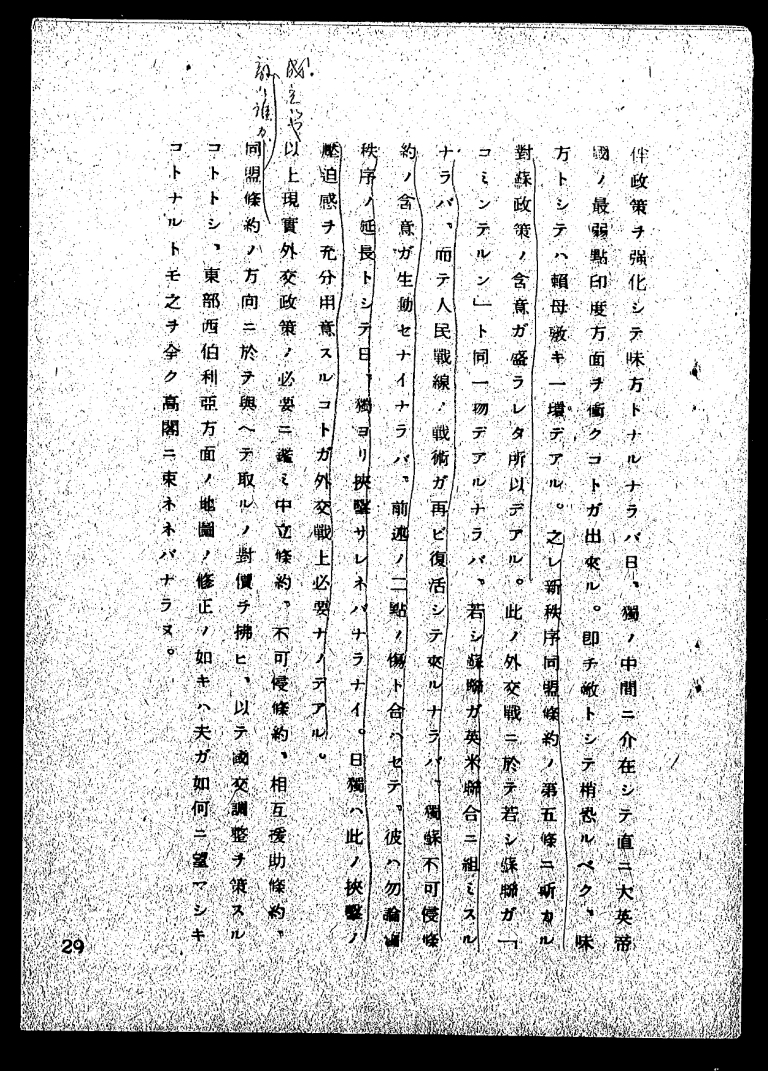 伴政策ヲ强化シテ味方トナルナラバ日、獨ノ中間ニ介在シテ直ニ大英帝
國ノ最弱點印度方面ヲ衝クコトガ出來ル。卽チ敵トシテ稍恐ルベク、味
方トシテハ賴母敷キ一環デアル。之レ新秩序同盟條約ノ第五條ニ斯カル
對蘇政策ノ含意ガ盛ラレタ所以デアル。此ノ外交戰ニ於テ若シ蘇聯ガ「
コミンテルン」ト同一物デアルナラバ、若シ蘇聯ガ英米聯合ニ組ミスル
ナラバ、而テ人民戰線ノ戰術ガ再ビ復活シテ來ルナラバ、獨蘇不可侵條
約ノ含意ガ生動セナイナラバ、前述ノ二點ノ傷ト合ハセテ、彼ハ勿論
秩序ノ延長トシテ日、獨ヨリ挾擊サレネバナラナイ。日獨ハ此ノ挾擊ノ
壓迫感ヲ充分用意スルコトガ外交戰上必要ナノデアル。
以上現實外交政策ノ必要ニ鑑ミ中立條約、不可侵條約、相互援助條約、
同盟條約ノ方向ニ於テ與ヘテ取ルノ對價ヲ拂ヒ、以テ國交調整ヲ策スル
コトトシ、東部西伯利亞方面ノ地圖ノ修正ノ如キハ夫ガ如何ニ望マシキ
コトナルトモ之ヲ全ク高閣ニ束ネネバナラヌ。
29